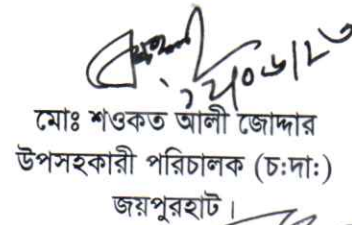 মোঃ শওকত আলী জোদ্দার
উপসহকারী পরিচালক (চ:দা:)
জয়পুরহাট।